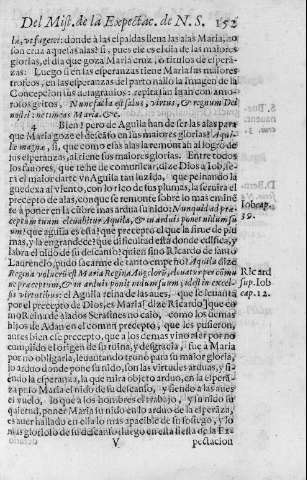 Del Mist. de la Expectac. de N. S. 152
la, ve fugere: donde à las espaldas llena las alas Maria, no
son cruz aquellas alas? si, pues esse es el dia de las maiores
glorias, el dia que goza Maria cruz, ò titulos de espera-
zas: Luego si en las esperanzas tiene Maria sus maiores
trofeos, en las esperanzas del parto la imagen de la
Concepcion sus
rosos gritos, Nunc facta est salus, virtus, & regnum Dei
nostri: nec timeas Maria, &c.
4 Bien: pero de Aguila han de ser las alas para
que Maria goze el descãso en sus maiores glorias? Aqui-
la magna, si, que como essas alas la remontan al logro de
sus esperanzas, ai tiene sus maiores glorias. Entre todos
los fauores, que teme de comunicar, dize Dios a Iob, se-
rà el maior darte vn Aguila tan luzida, que peinando la
guedexa al viento, con lo rico de sus plumas, la seruira el
precepto de alas, conque se remonte sobre lo mas emine
te à poner en la cũbre mas ardua su nido: Nunquid ad præ-
ceptum tuum eleuabitur Aquila, & in arduis ponet nidum su-
um? que aguila es esta? que precepto el que la sirue de plu
mas, y la engrandece? que dificultad està donde edifica, y
labra el nido de su descanso? quien sino Ricardo de santo
Laurencio, pudo sacarme de tanto empeño? Aquila dize
Regina volucrũ est Maria Regina Angelorũ, eleuatur per cõmu
ne præceptum, & in arduis ponit nidum suum, idest in excel-
sis virtutibus: el Aguila reina de las aues, que se leuanta
por el precepto de Dios, es Maria! dize Ricardo] que co
mo Reina de alados Serafines no caiò, como los demas
hijos de Adan en el comun precepto, que les pusieron,
antes bien esse precepto, que a los demas vino a ser por no
cumplirse origen de su ruina, y desgracia, fue a Maria
por no obligarla, leuantado trono para su maior gloria,
y lo arduo donde pone su nido, son las virtudes arduas, y si-
endo la esperanza, la que mira objeto arduo, en la espera-
za puso Maria el nido de su descanso, y siendo a las aues
el vuelo, lo que a los hombres el trabajo, y su nido su
quietud, poner Maria su nido en lo arduo de la esperãza,
es auer hallado en ella lo mas apacible de su sossego, y lo
mas glorioso de su descanso; luego en esta fiesta de la Ex-
V pectacion
Iob cap.
39.
Ricard
sup. Iob
cap. 12.